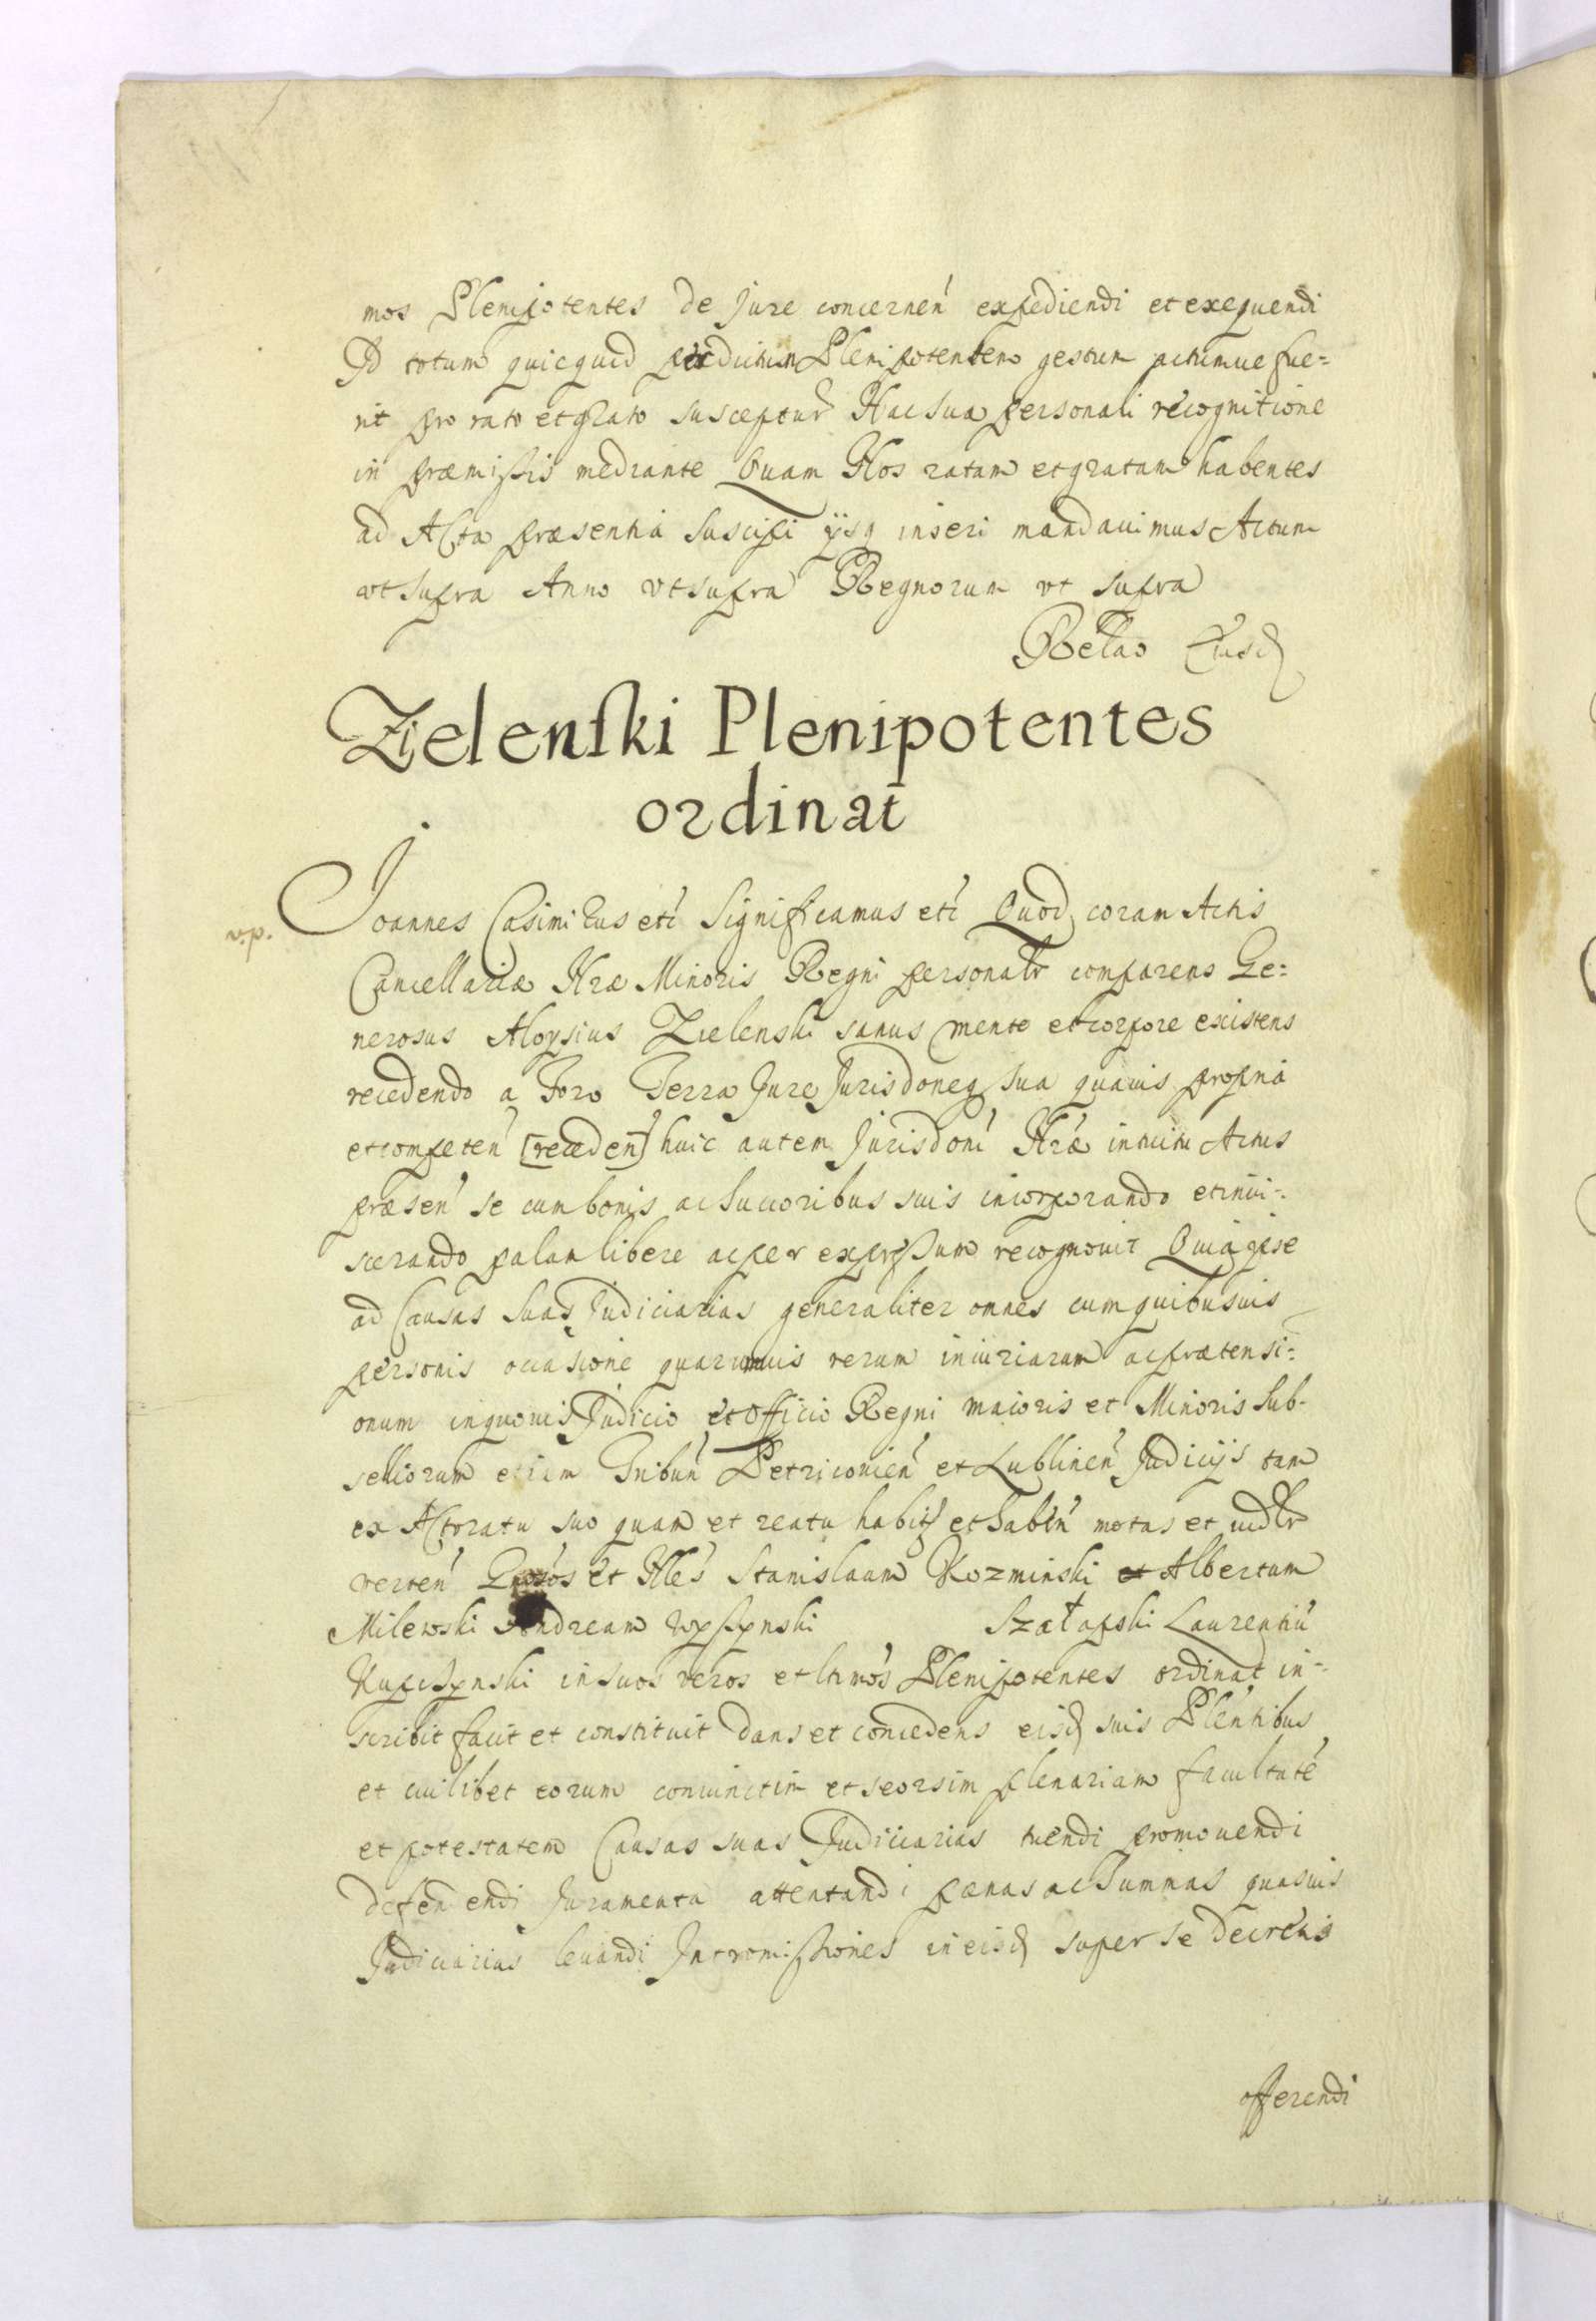 mos Plenipotentes de Jure concernen̄ expediendi et exequendi
Id totum quicquid per dictum Plenipotentem gestum actumue fue=
rit pro rato et grato susceptur Hac sua personali recognitione
in præmissis mediante Quam Nos ratam et gratam habentes
ad Acta præsentia suscipi ijsq inseri mandauimus Actum
vt supra Anno vt supra Regnorum vt supra
Rellao Eiusd
Zielenski Plenipotentes
ordinat
v.p.
Joannes Casimirus etc Significamus etc Quod coram Actis
Cancellariæ Nræ Minoris Regni personalr comparens Ge=
nerosus Aloysius Zielenski sanus mente et corpore existens
recedendo a Foro Terra Jure Jurisdoneq sua quauis propria
et competen̄ [receden̄] huic autem Jurisdoni Nræ intuitu Actus
præsen̄ se cum bonis ac Succoribus suis incorporando et inui=
scerando palam libere ac per expressum recognouit Quia ipse
ad Causas suas Judiciarias generaliter omnes cum quibusuis
personis occasione quarumuis rerum iniuriarum ac prætensi=
onum in quouis Judicio et Officio Regni maioris et Minoris Sub-
selliorum etiam Tribun̄ Petricouien̄ et Lublinen̄ Judicijs tam
ex Actoratu suo quam et reatu habit et haben̄ motas et
verten̄ Gnosos et Nles Stanislaum Kozminski et Albertum
Milewski Andream Wyssynski Szczałapski Laurentiū
Kupczynski in suos veros et ltimos Plenipotentes ordinat in=
scribit facit et constituit dans et concedens eisd suis Plentibus
et cuilibet eorum coniunctim et seorsim plenariam facultatē
et potestatem Causas suas Judiciarias tuendi promouendi
defendendi Juramenta attentandi pœnas ac Summas quasuis
Judiciarias leuandi Intromissiones in eisd super se decretis
offerendi